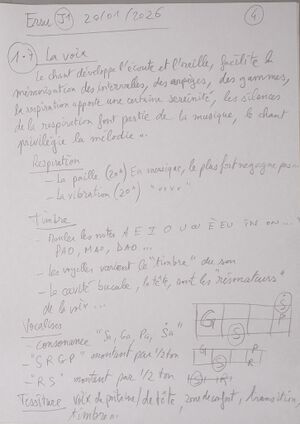 Ersu J1 20/01/2026 4
1.4 La voix
Le chant développe l'écoute et l'oreille, facilite la
mémorisation des intervalles, des arpèges, des gammes,
la respiration apporte une certaine sérénité, les silences
de la respiration font partie de la musique, le chant
privilégie la mélodie.
Respiration
- La paille (20") En musique, le plus fort ne gagne pas
- La vibration (20")
Timbre
- Rouler les notes A E I O U OU È EU IN ON ...
PAO, MAO, BAO ...
- les voyelles varient le "timbre" du son
- la cavité buccale, la tête, sont les "résonateurs"
de la voix ...
Vocalises
- consonance "Sa, Ga, Pa, Ṡa"
- "S R G P" montant par 1/2 ton
- "R S" montant par 1/2 ton
G S S P
G P
S R
Tessiture voix de poitrine / de tête, zone de confort, transition,
timbre